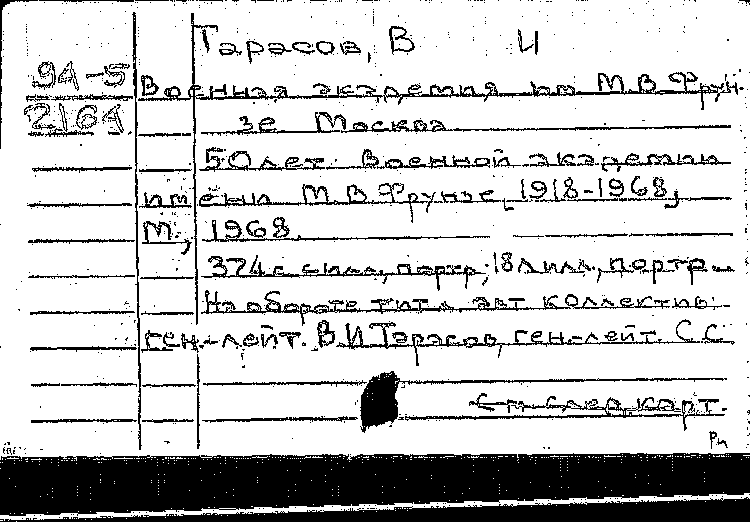 Тарасов, В И
94-5
2164
Военная академия им М.В.Фрун-
зе. Москва.
50 лет Военной академии
имени М.В.Фрунзе, 1918-1968,
М., 1968.
374 с с илл., портр; 18 л илл., портр.
На обороте тит л. авт коллектив:
ген.-лейт. В.И Тарасов, ген.-лейт. С С
См след. карт.
Рп